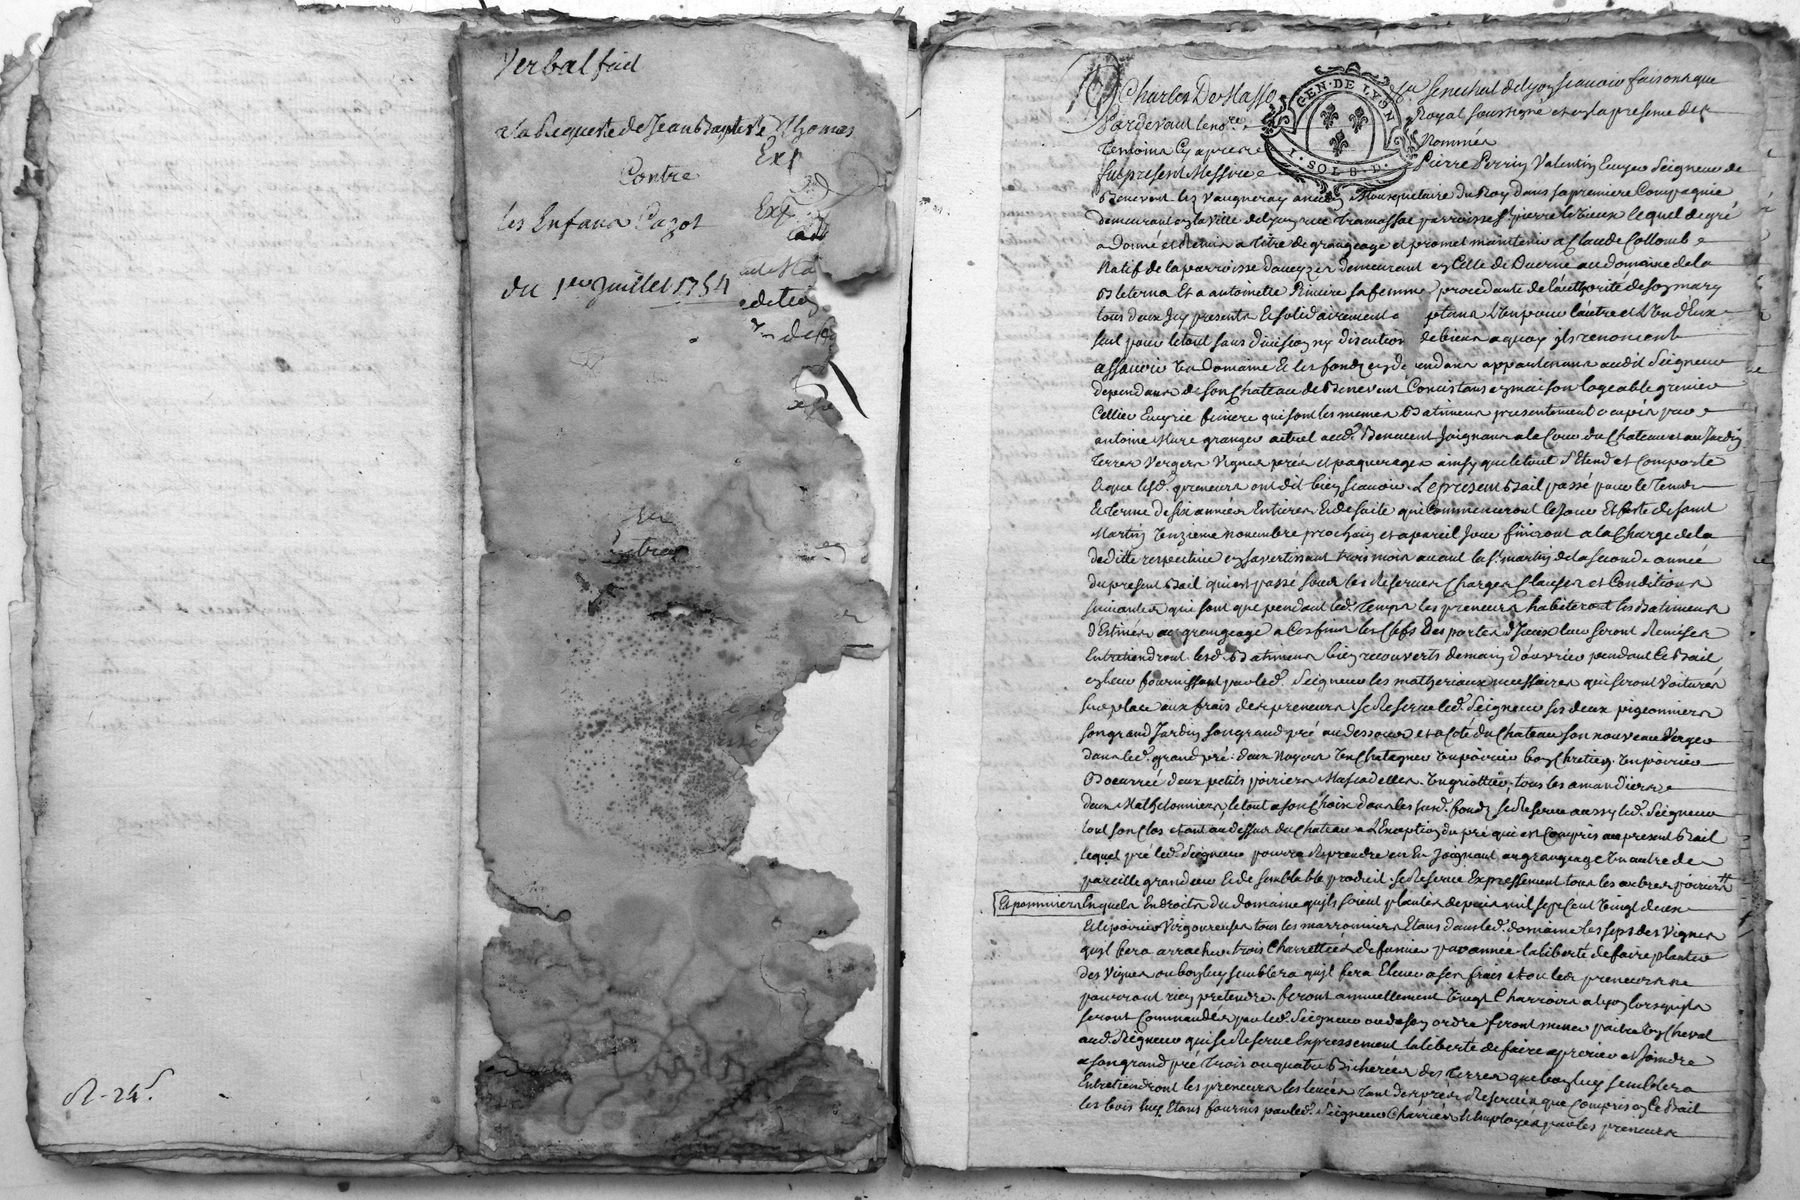 Verbal fait
a la Requeste de Jean Baptiste Thomas
Contre
les Enfans Cazot
du 1er Juillet 1754
Exp
Exp
R - 24s.
GEN · DE LYON
I · SOLS · D ·
Charles De Masso
la Senechal de lyon scavoir faisons que
Pardevant le nore
Royal soussigné et en la presence des
Temoins Cy apres
Nommés
fut present Messire
Pierre Perrin Valentin Ecuyer Seigneur de
Benevent les Vaugneray ancien Mousquetaire du Roy dans sa premiere Compagnie
demeurant en la ville de lyon rue Tramassac parroisse St pierre le Vieux lequel de gré
a Donné et Remis a titre de grangeage et promet maintenir a Claude Collomb
Natif de la parroisse demeurant en Celle de Duerne au domaine de la
Et a antoinette sa femme procedante de l'authorité de son mary
tous deux Icy presents et solidairement L'un pour l'autre et L'un d'Eux
seul pour le tout sans division ny discution de biens a quoy ils renoncent
assavoir Un Domaine et les fonds en appartenans audit Seigneur
dependans de son Chateau de Benevent Concistans en maison logeable grenier
Cellier Ecuyrie feniere qui sont les memes Batimens presentement occupés par
antoine Mure granger actuel aud. Benevent Joignans a la Cour du Chateau et au Jardin
Terres Vergers Vignes prés et paquerages ainsy que le tout s'Etend et Comporte
Et que lesd. preneurs ont dit bien scavoir. Le present Bail passé pour le Tems
Et terme de six années Entieres Et de suite qui Commenceront le Jour Et feste de saint
Martin Onzieme novembre prochain et a pareil Jour finiront a la Charge de la
deditte respective en s'avertissant trois mois avant la St martin de la seconde année
du present Bail qui est passé sous les Reserves Charges Clauses et Conditions
suivantes qui sont que pendant led. Temps les preneurs habiteront les Batimens
d'Estinés au grangeage a Ces fins les Clefs Des portes d'Iceux leur seront Remises
Entretiendront lesd. Batimens bien recouverts de main d'ouvrier pendant Ce Bail
en leur fournissant par led. Seigneur les matheriaux necessaires qui seront Voiturés
sur place aux frais des preneurs se Reserve led. Seigneur ses deux pigeonniers
son grand Jardin son grand pré au dessous et a Coté du Chateau son nouveau Verger
dans led. grand pré. deux Noyers Un Chatagner Un poirier bon Chretien. Un poirier
Beurré deux petits poiriers Muscadelles Un griottier, tous les amandiers
deux le tout a son Choix dans les susd. fonds se Reserve aussy led. Seigneur
tout son Clos Etant au dessus du Chateau a L'Exception du pré qui est Compris au present Bail
lequel pré led. Seigneur pourra Reprendre en En Joignant au grangeage Un autre de
pareille grandeur Et de semblable produit. se Reserve Expressement tous les arbres poiriers
Et pommiers Enquels Endroits du domaine qu'ils soient plantés depuis mil sept Cent Vingt deux
tous les marronniers Etans dans led. domaine les seps des Vignes
qu'il fera arracher trois Charrettées de fumier par année la liberté de faire planter
des Vignes ou bon luy semblera qu'il fera Elever a ses frais et ou les preneurs ne
pourront rien pretendre. feront annuellement Vingt Charrois a lyon lorsqu'ils
seront Commandés par led. Seigneur ou de son ordre feront mener paitre Un Cheval
aud. Seigneur qui se Reserve Expressement la liberté de faire et Joindre
a son grand pré Trois ou quatre Bicherées des Terres que bon luy semblera
Entretiendront les preneurs les Tant des prés Reservés que Compris en Ce Bail
les bois luy Etans fournis par led. Seigneur Charriés Et Employés par les preneurs